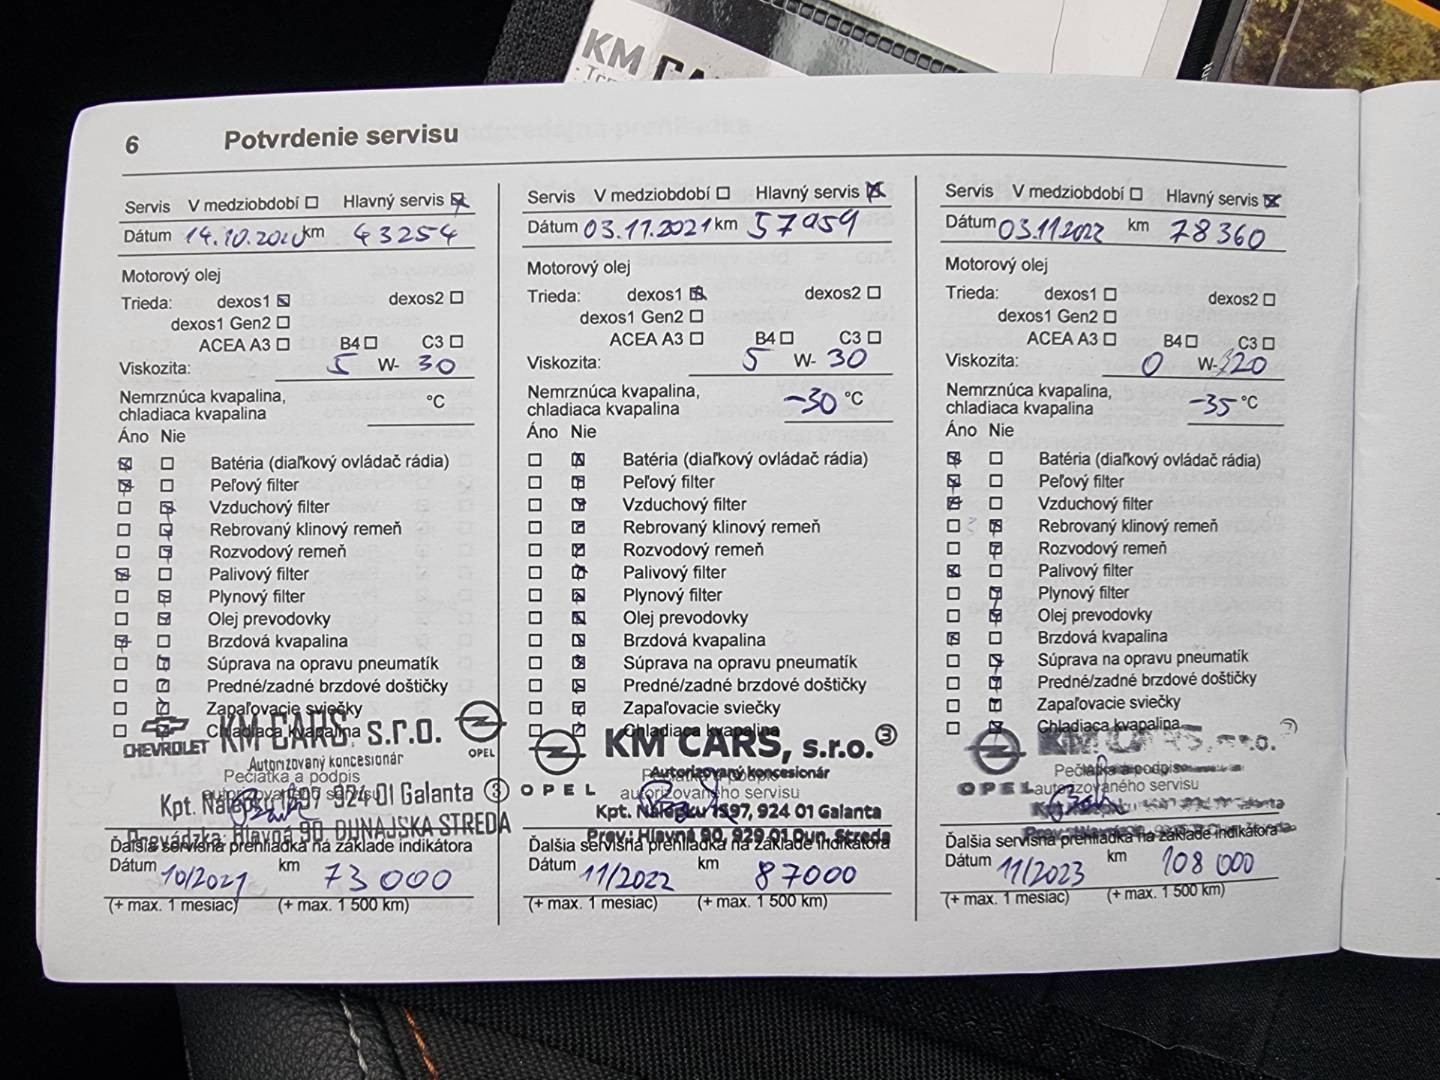 KM CA
6 Potvrdenie servisu
Servis V medziobdobí Hlavný servis
Dátum 14.10.2020 km 43254
Motorový olej
Trieda: dexos1 dexos2
dexos1 Gen2
ACEA A3 B4 C3
Viskozita: 5 W- 30
Nemrznúca kvapalina, °C
chladiaca kvapalina
Áno Nie
Batéria (diaľkový ovládač rádia)
Peľový filter
Vzduchový filter
Rebrovaný klinový remeň
Rozvodový remeň
Palivový filter
Plynový filter
Olej prevodovky
Brzdová kvapalina
Súprava na opravu pneumatík
Predné/zadné brzdové doštičky
Zapaľovacie sviečky
Chladiaca kvapalina
CHEVROLET KM CARS, s.r.o. OPEL
Autorizovaný koncesionár
Pečiatka a podpis
autorizovaného servisu
Kpt. Nálepku 1597 924 01 Galanta 3
Prevádzka: Hlavná 90, DUNAJSKA STREDA
Ďalšia servisná prehliadka na základe indikátora
Dátum 10/2021 km 73 000
(+ max. 1 mesiac) (+ max. 1 500 km)
Servis V medziobdobí Hlavný servis
Dátum 03.11.2021 km 57959
Motorový olej
Trieda: dexos1 dexos2
dexos1 Gen2
ACEA A3 B4 C3
Viskozita: 5 W- 30
Nemrznúca kvapalina, -30 °C
chladiaca kvapalina
Áno Nie
Batéria (diaľkový ovládač rádia)
Peľový filter
Vzduchový filter
Rebrovaný klinový remeň
Rozvodový remeň
Palivový filter
Plynový filter
Olej prevodovky
Brzdová kvapalina
Súprava na opravu pneumatík
Predné/zadné brzdové doštičky
Zapaľovacie sviečky
Chladiaca kvapalina
KM CARS, s.r.o. 3
Autorizovaný koncesionár
Pečiatka a podpis
OPEL autorizovaného servisu
Kpt. Nálepku 1597, 924 01 Galanta
Prev.: Hlavná 90, 929 01 Dun. Streda
Ďalšia servisná prehliadka na základe indikátora
Dátum 11/2022 km 87000
(+ max. 1 mesiac) (+ max. 1 500 km)
Servis V medziobdobí Hlavný servis
Dátum 03.11.2022 km 78360
Motorový olej
Trieda: dexos1 dexos2
dexos1 Gen2
ACEA A3 B4 C3
Viskozita: 0 W- 20
Nemrznúca kvapalina, -35 °C
chladiaca kvapalina
Áno Nie
Batéria (diaľkový ovládač rádia)
Peľový filter
Vzduchový filter
Rebrovaný klinový remeň
Rozvodový remeň
Palivový filter
Plynový filter
Olej prevodovky
Brzdová kvapalina
Súprava na opravu pneumatík
Predné/zadné brzdové doštičky
Zapaľovacie sviečky
Chladiaca kvapalina
KM CARS, s.r.o.
Pečiatka a podpis
OPEL autorizovaného servisu
Ďalšia servisná prehliadka na základe indikátora
Dátum 11/2023 km 108 000
(+ max. 1 mesiac) (+ max. 1 500 km)